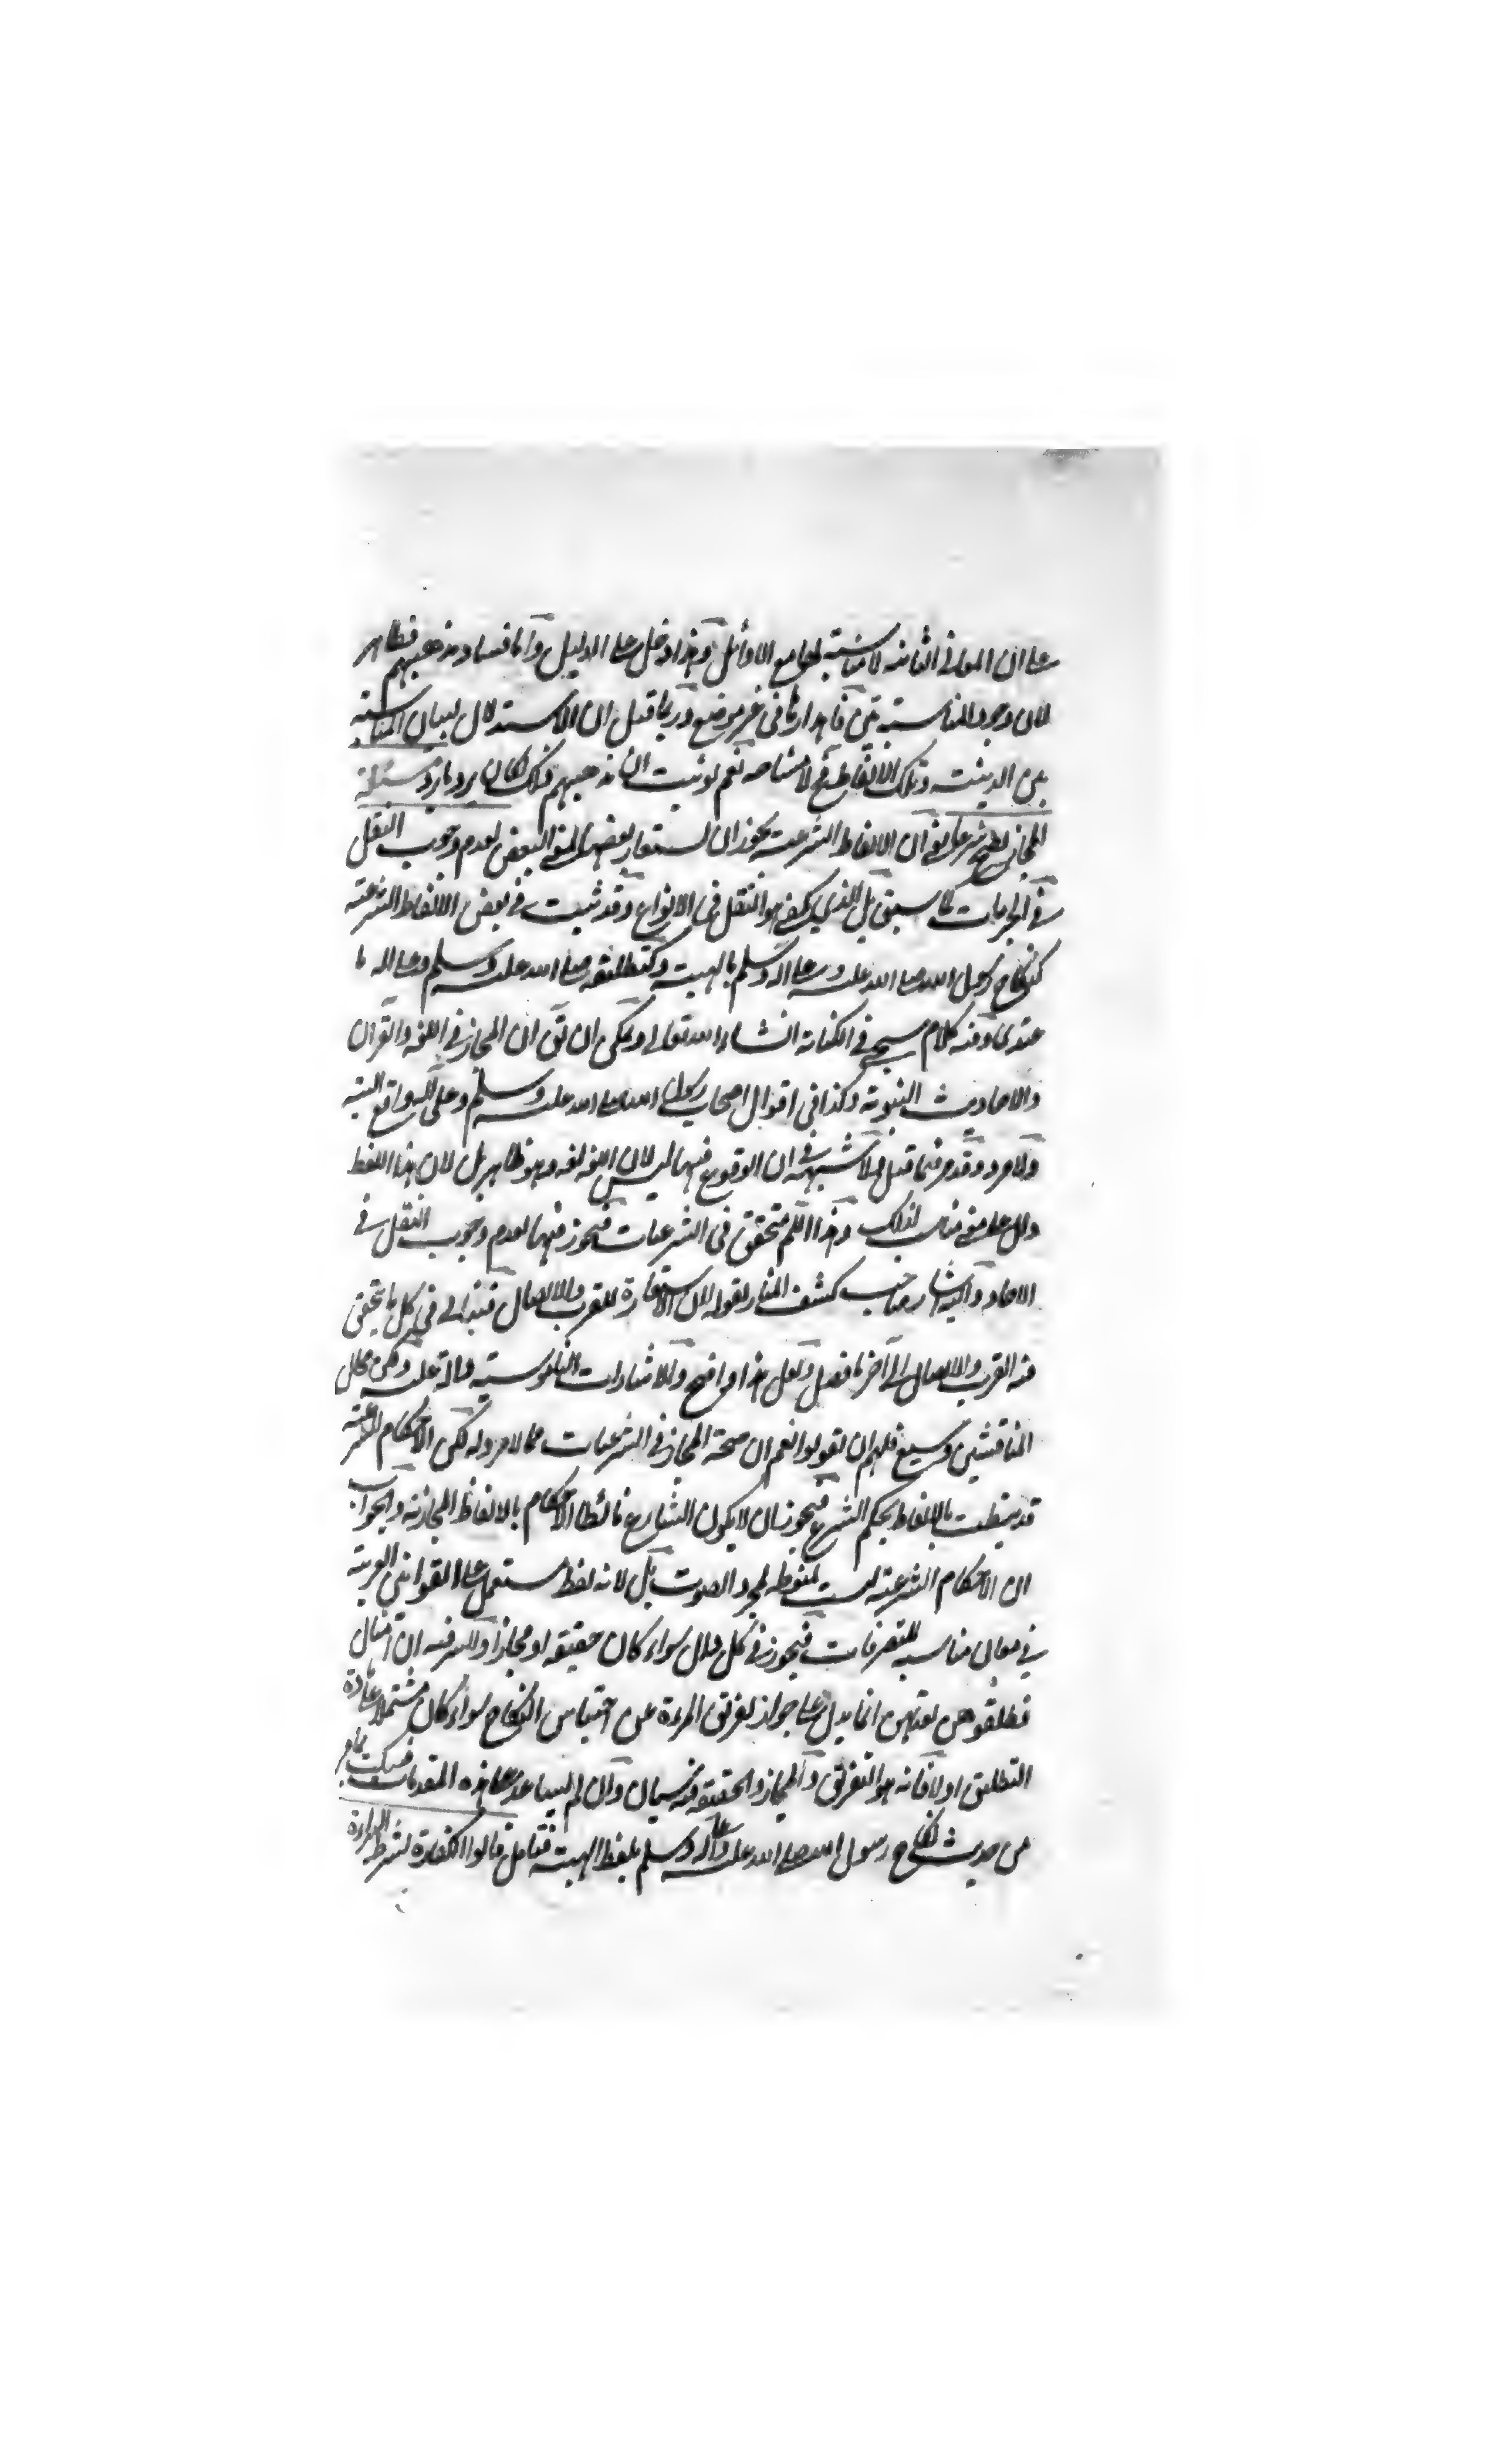 على ان المعاني الثانية لا مناسبة لها مع الاوائل وهذا دخل على الدليل واما فساد مذهبهم فظاهر
لان وجود المناسبة بين فاندارها في غير موضع وربما قيل ان الاستدلال لبيان المناسبة
بين الدينية وتلك الالفاظ فح لا مشاحة نعم لو ثبت ان مذهبهم ذلك لكان يرد بارد مسئلة
المجاز يصح شرعا يعني ان الالفاظ الشرعية يجوز ان يستعار بعضها لمعنى البعض لعدم وجوب النقل
في الجزئيات كما سبق بل الذي يكفي هو النقل في الانواع وقد ثبت في بعض الالفاظ الشرعية
كنكاح رسول الله صلى الله عليه وعلى اله وسلم بالهبة وكتطليقه صلى الله عليه وسلم وعلى اله
عندي وفيه كلام سيجيء في الكناية انشاء الله تعالى ويمكن ان يق ان المجاز في اللغة والقران
والاحاديث النبوية وكذا في اقوال اصحاب رسول الله صلى الله عليه وسلم وعلى اله واقع البتة
ولا مرد وقد مر فيما قبل ولا شبهة في ان الوقوع فيها ليس لان اللغة لغة وهو ظاهر بل لان هذا اللفظ
دال على معنى مناسب لذلك وهذا اللم متحقق في الشرعيات فيجوز فيها لعدم وجوب النقل في
الاحاد واليه اشار صاحب كشف المنار بقوله لان الاستعارة للقرب والاتصال فيتدالى في كل ما يتحقق
فيه القرب والاتصال الى آخر ما فصل ولعل هذا واضح والاشارات التلويحية دالة عليه ولكن مجال
المناقشين وسيع فلهم ان يقولوا نعم ان صحة المجاز في الشرعيات مما لا مرد له لكن الاحكام الشرعية
قد نيطت بالالفاظ بحكم الشرع فيجوز ان لا يكون الشارع نائطا الاحكام بالالفاظ المجازية والجواب
ان الاحكام الشرعية ليست بمنوطة لمجرد الصوت بل لانه لفظ مستعمل على القوانين العربية
في معان مناسبة للتصرفات فيجوز في كل دال سواء كان حقيقة او مجازا والسر فيه ان امثال
فطلقوهن لعدتهن انما يدل على جواز تفريق المرءة عن احتباس النكاح سواء كان مشتملا على مادة
التطليق او لا فانه هو التفريق والمجاز والحقيقة فيه سيان وان لم يساعد على هذه المقدمات فيكفيك ما مر
من حديث نكاح رسول الله صلى الله عليه وعلى اله وسلم بلفظ الهبة فتامل قالوا الكفارة لشرط البراءة